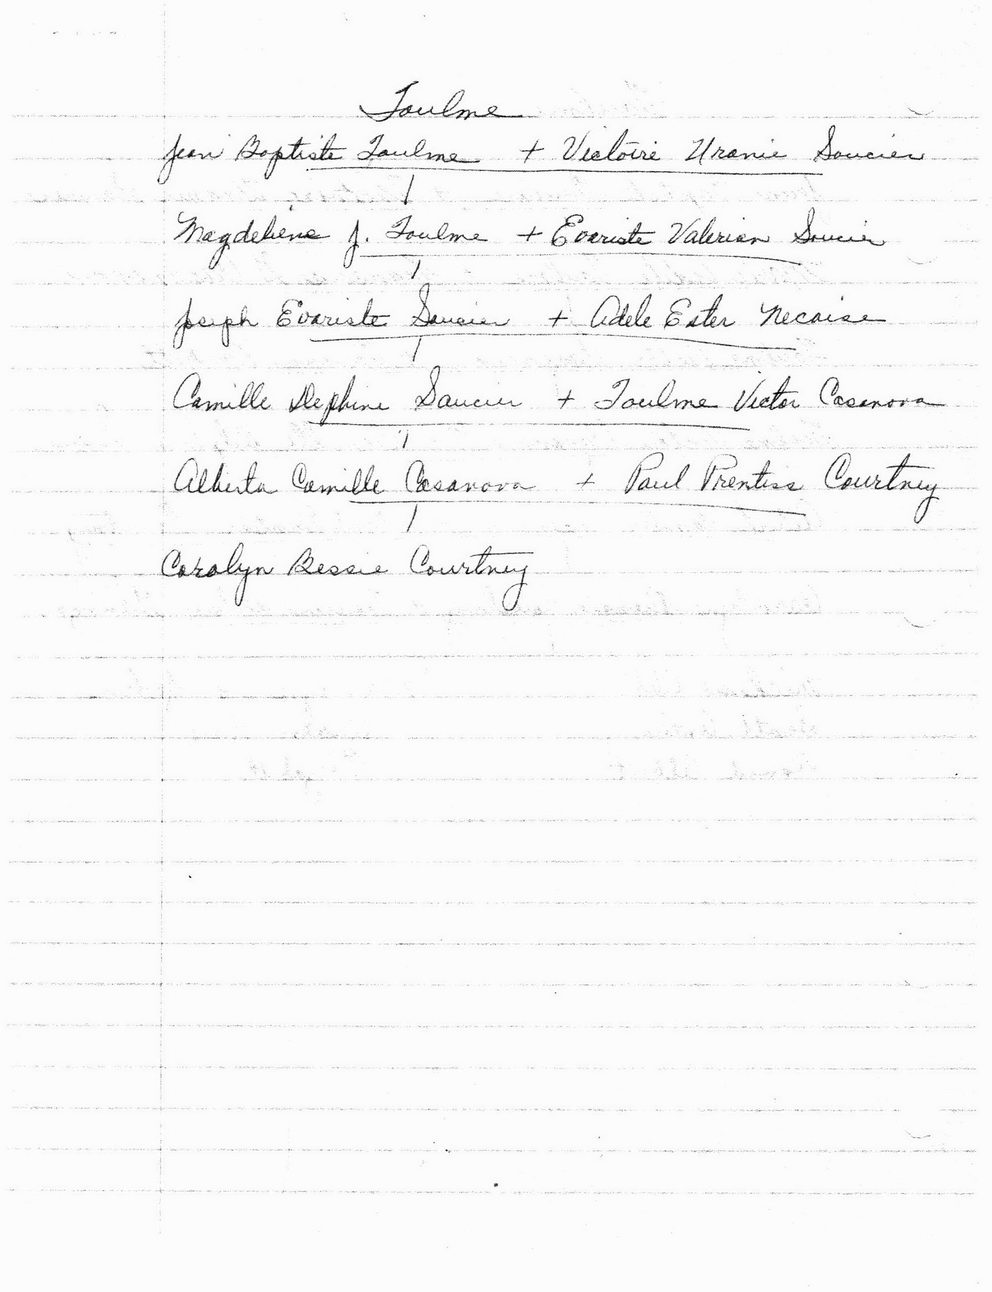 Toulme
Jean Baptiste Toulme + Victoire Uranie Saucier
Magdeliene J. Toulme + Evariste Valerian Saucier
Joseph Evariste Saucier + Adele Ester Necaise
Camille Dephine Saucier + Toulme Victor Casanova
Alberta Camille Casanova + Paul Prentiss Courtney
Carolyn Bessie Courtney